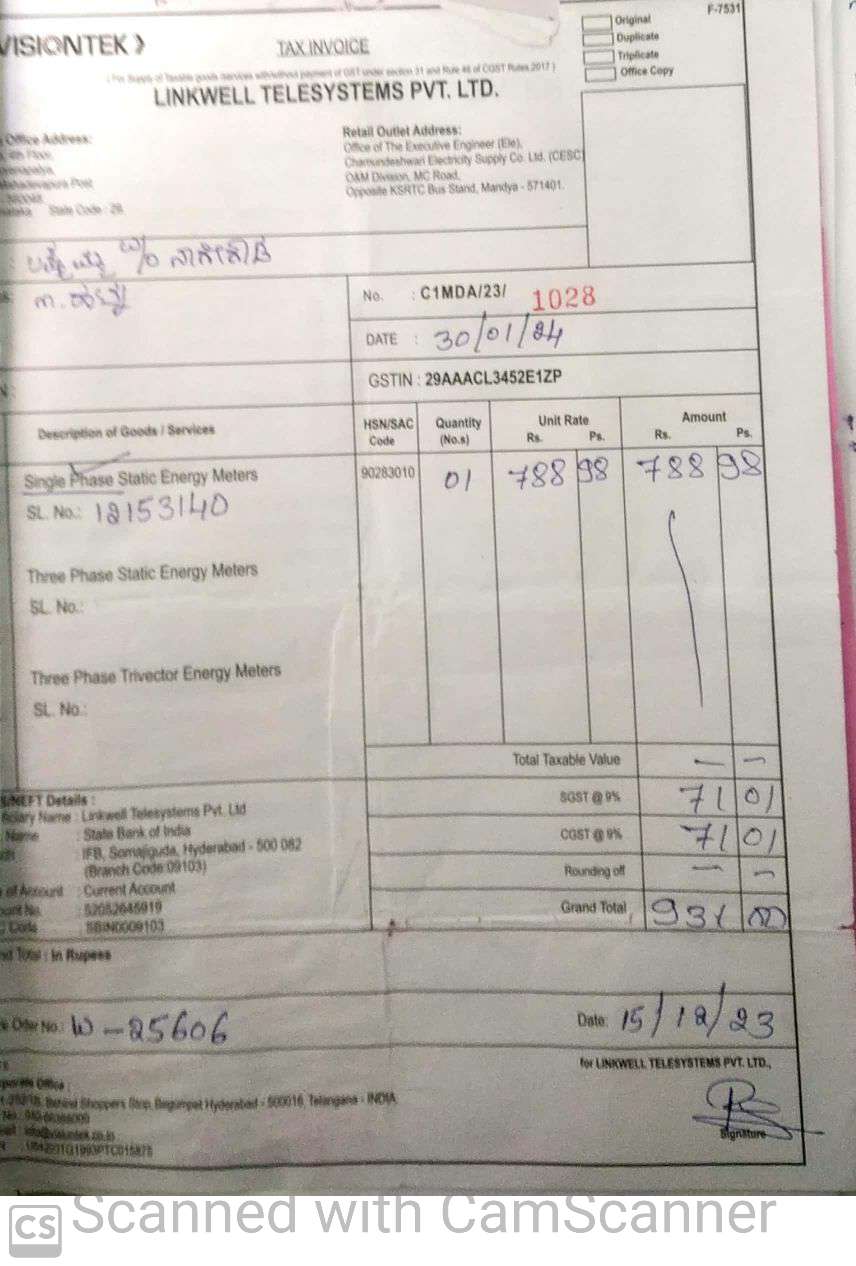 F-7531
Original
Duplicate
Triplicate
Office Copy
VISIONTEK
TAX INVOICE
(For Supply of Taxable goods /services with/without payment of GST under section 31 and Rule 46 of CGST Rules 2017)
LINKWELL TELESYSTEMS PVT. LTD.
Office Address:
4th Floor,
Mahadevapura Post
State Code : 29
Retail Outlet Address:
Office of The Executive Engineer (Ele),
Chamundeshwari Electricity Supply Co. Ltd. (CESC)
O&M Division, MC Road,
Opposite KSRTC Bus Stand, Mandya - 571401.
No. : C1MDA/23/ 1028
DATE : 30/01/24
GSTIN : 29AAACL3452E1ZP
Description of Goods / Services HSN/SAC Code Quantity (No.s) Unit Rate Rs. Ps. Amount Rs. Ps.
Single Phase Static Energy Meters 90283010 01 788 98 788 98
SL. No.: 12153140
Three Phase Static Energy Meters
SL. No.:
Three Phase Trivector Energy Meters
SL. No.:
Total Taxable Value — —
SGST @ 9% 71 01
CGST @ 9% 71 01
Rounding off — —
Grand Total 931 00
/NEFT Details :
ficiary Name : Linkwell Telesystems Pvt. Ltd
Name : State Bank of India
: IFB, Somajiguda, Hyderabad - 500 082
(Branch Code:09103)
of Account : Current Account
: 52052645919
Code : SBIN0009103
nd Total : In Rupees
Offer No.: W-25606
Date: 15/12/23
for LINKWELL TELESYSTEMS PVT. LTD.,
Behind Shoppers Stop, Begumpet Hyderabad - 500016, Telangana - INDIA
Signature
CS Scanned with CamScanner